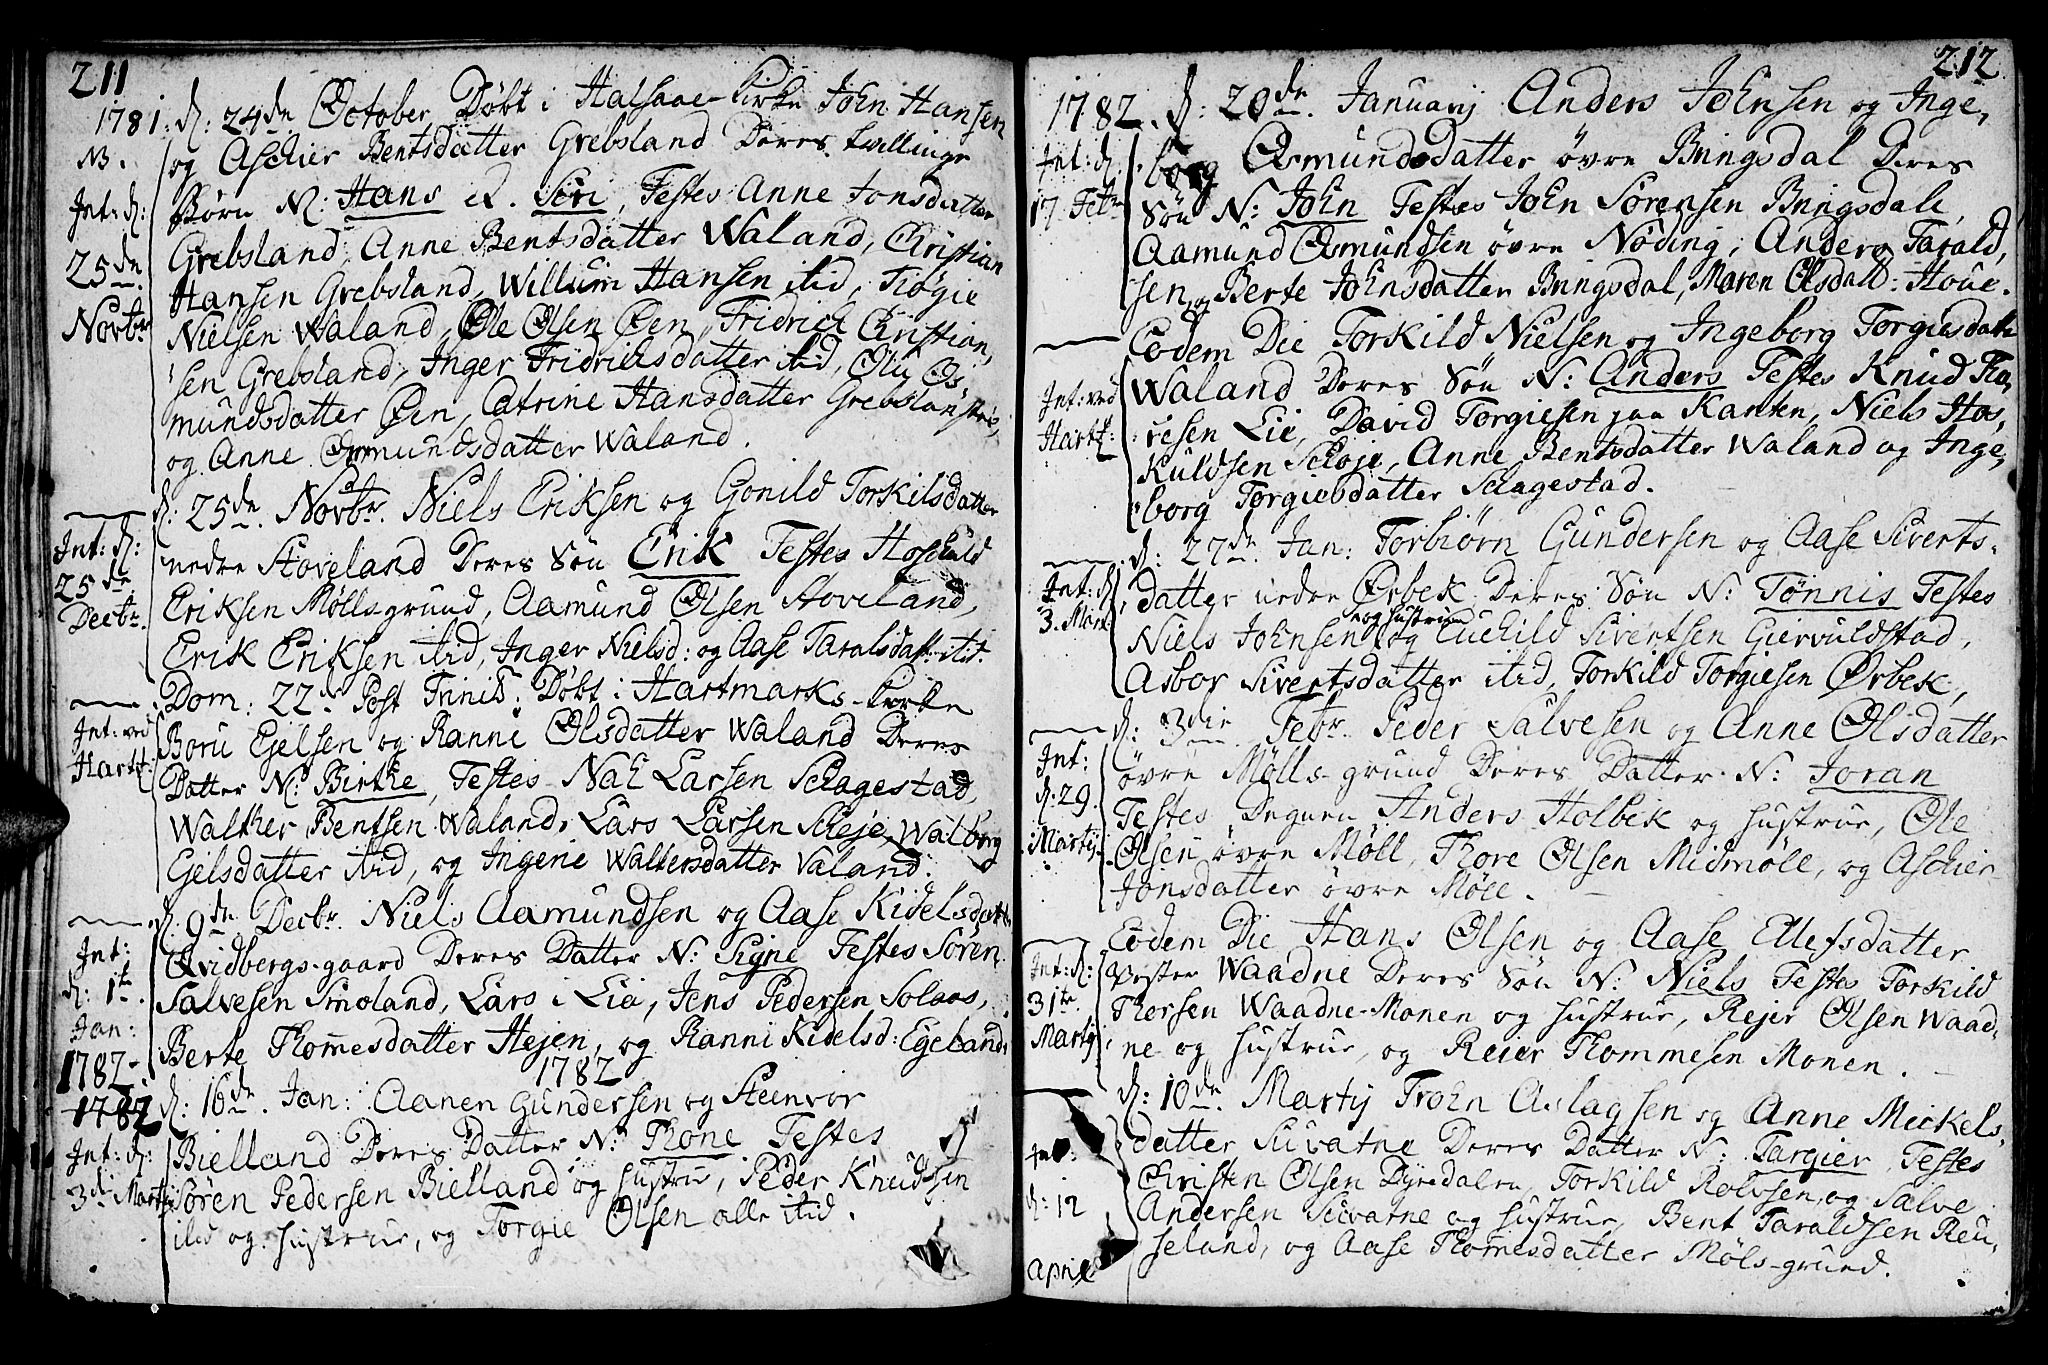 211
1781. d: 24de October Døbt i Halsaae-Kirke John Hansen
NB. og Aschier Bentsdatter Grebsland Deres tvillinge
Int: d: Børn N: Hans et Siri, Testes Anne Jonsdatter
25de Grebsland, Anne Bentsdatter Waland, Christian
Hansen Grebsland, Willum Hansen itid, Tiøgie
Novbr Nielsen Waland, Ole Olsen Øen, Fridrich Christian,
sen Grebsland, Inger Fridrichsdatter itid, Oliv Os,
mundsdatter Øen, Catrine Hansdatter Grebsland
og Anne Omundsdatter Waland.
d: 25de Novbr. Niels Eriksen og Gonild Torkilsdatter
Int: d: nedre Stoveland Deres Søn Erik Testes Hoschuld
25de Eriksen Møllsgrund, Aamund Olsen Stoveland,
Decbr. Erik Eriksen itid, Inger Nielsd: og Aase Taralsdatt: itid.
Dom: 22d Post Trinit: Døbt i Hartmarks-Kirke
Int: ved Boru Ejelsen og Ranni Olsdatter Waland Deres
Hartk: Datter N: Birthe, Testes Nah Larsen Schagestad,
Walther Bentsen Waland, Lars Larsen Scheje, Walborg
Ejelsdatter itid, og Ingerie Waltersdatter Valand.
d: 9de Decbr. Niels Aamundsen og Aase Kidelsdatt:
Int: Qvidbergs-gaard Deres Datter N: Signe Testes Sören
d: 1te Salvesen Smoland, Lars i Lia, Jens Pedersen Solaas,
Jan: Berte Thomesdatter Hejen, og Ranni Kidelsd: Egeland.
1782.
1782
1782 d: 16de Jan: Aanen Gundersen og Steenvor
Int: d: Bielland Deres Datter N: Thone Testes
3di Martij Sören Pedersen Bielland og hustrue, Peder Knudsen
itid og hustrue, og Torgie Olsen alle itid.
212
1782. d: 20de Januarij Anders Johnsen og Inge,
Int: d: borg Osmundsdatter övre Bringsdal Deres
17. Febr Søn N: John Testes John Sörensen Bringsdal,
Aamund Osmundsen övre Nöding, Anders Tarald,
sen, og Berte Johnsdatter Bringsdal, Maren Olsdatt: Houe.
Eodem Die Torkild Nielsen og Ingeborg Torgiesdatter
Int: ved Waland Deres Søn N: Anders Testes Knud Tha,
Hartk: resen Lie, David Torgiesen paa Kanten, Niels Hos,
Kuldsen Schöje, Anne Bentsdatter Waland og Inge,
borg Torgiesdatter Schagestad.
d: 27de Jan: Torbiørn Gundersen og Aase Siverts-
Int: d. datter nedre Ørbek Deres Søn N: Tönnis Testes
og hustrue
3. Mart Niels Johnsen og Euchild Sivertsen Giervuldstad,
Asbor Sivertsdatter itid, Torkild Torgiesen Ørbek,
d: 3die Febr. Peder Salvesen og Anne Olsdatter
Int: övre Mölls-grund Deres Datter N: Joran
d: 29. Testes Degnen Anders Holbek og hustrue, Ole
Martij Olsen övre Möll, Thore Olsen Midmöll, og Aschier
Jonsdatter övre Möll.
Eodem Die Hans Olsen og Aase Ellefsdatter
Int: d: Vester Waadne Deres Søn N: Niels Testes Torkild
31te Thorsen Waadne-Monen og hustrue, Rejer Olsen Waad-
Martij ne og hustrue, og Reier Thommesen Monen.
d: 10de Martij Trohn Aslagsen og Anne Mickels-
Int: datter Suvatne Deres Datter N: Targier Testes
Christen Olsen Dyredalen, Torkild Rolvsen, og Salve
d: 12 Andersen Suvatne og hustrue, Bent Taraldsen Reu-
April seland, og Aase Thomesdatter Möls-grund.